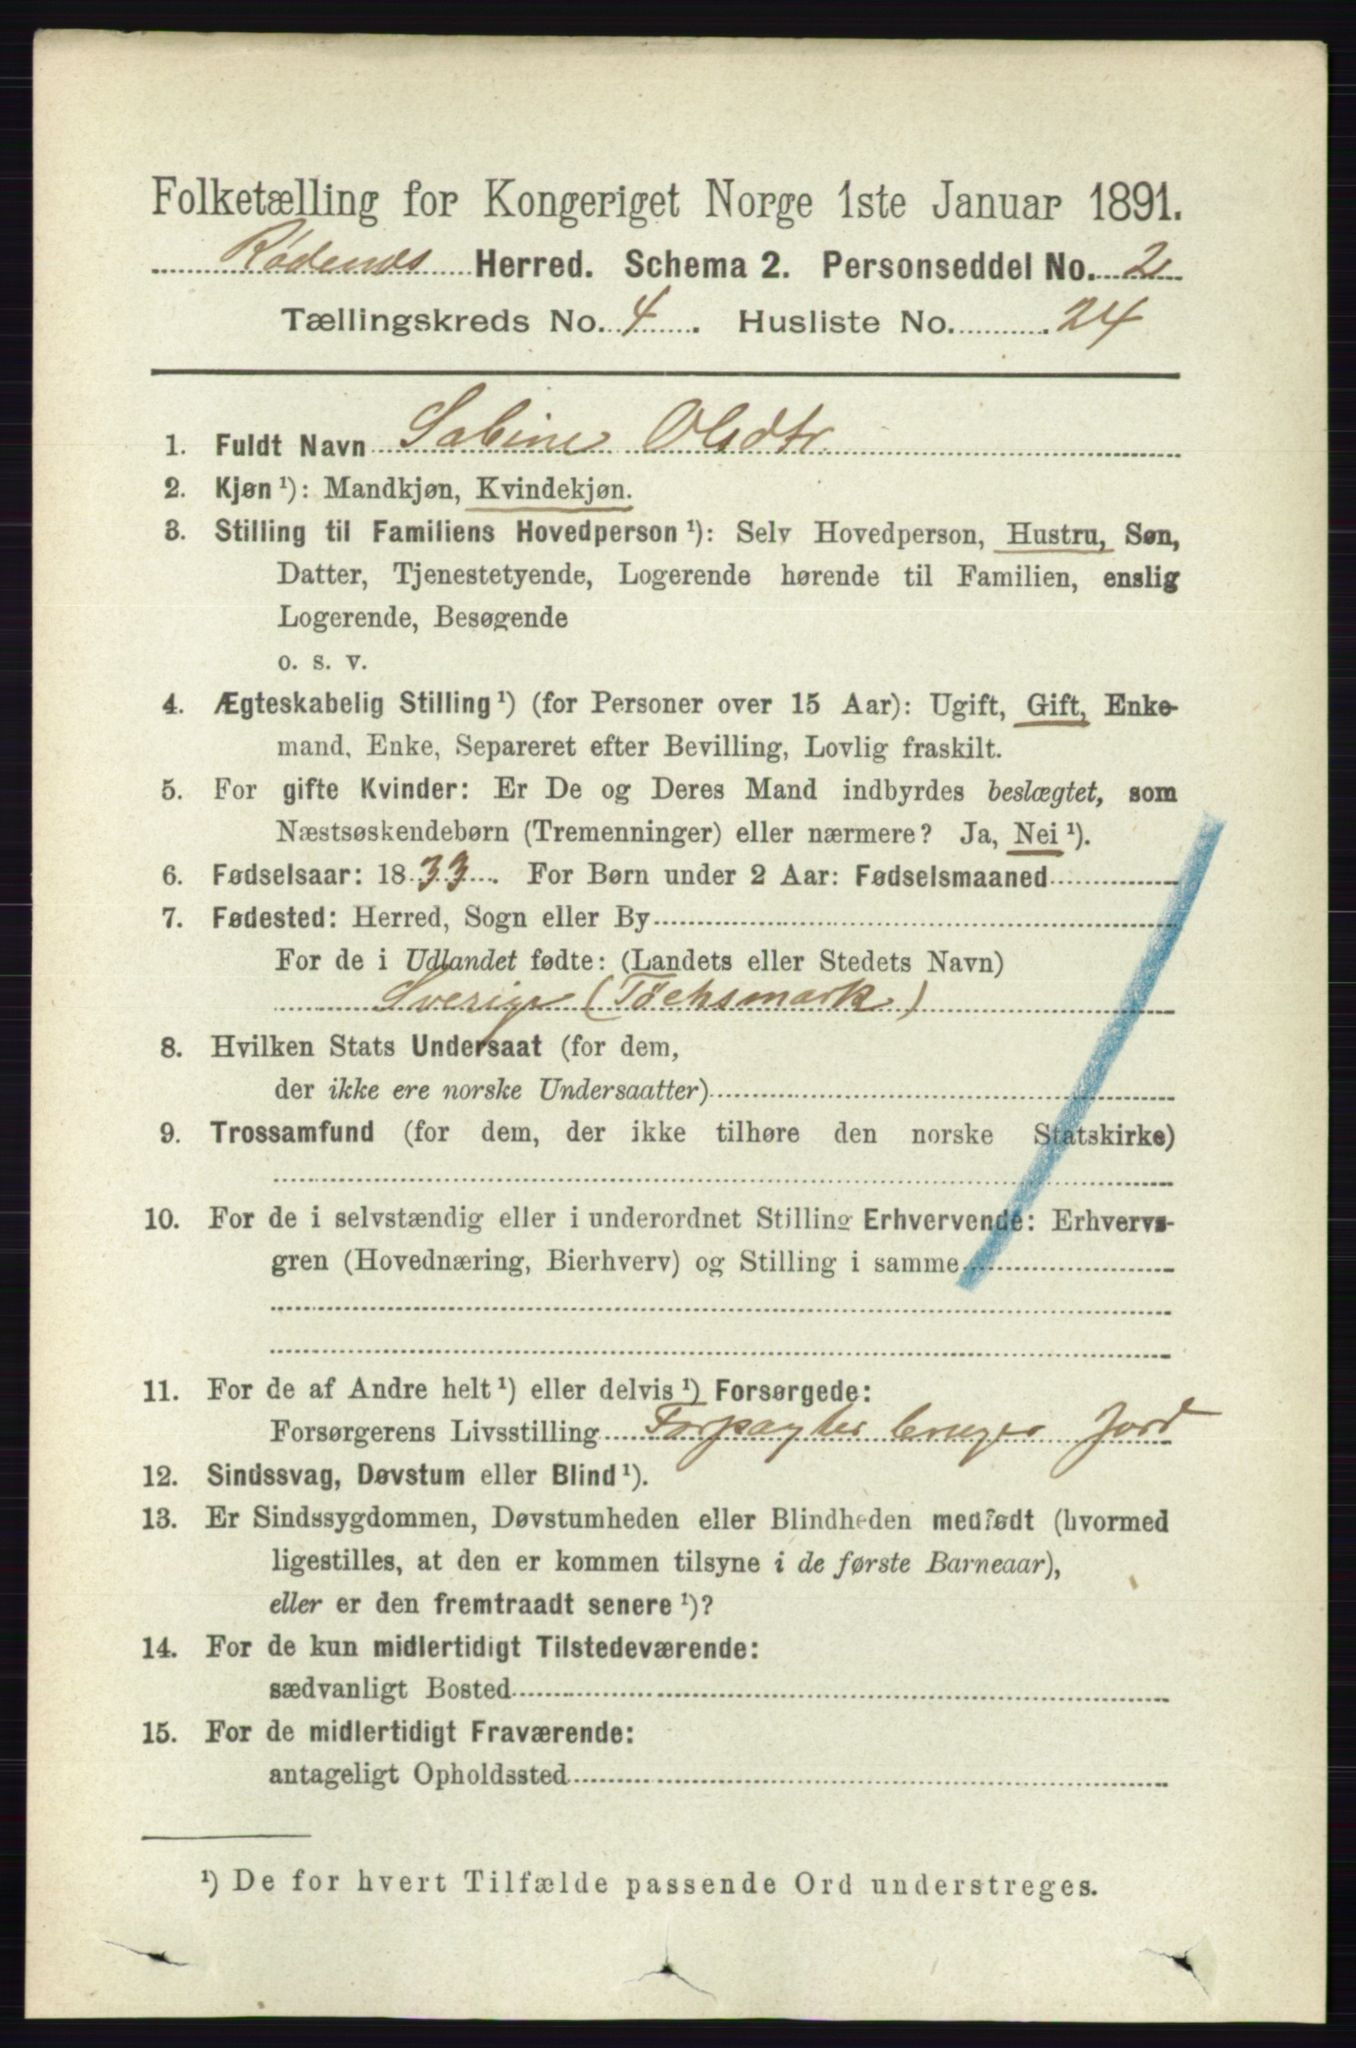 Folketælling for Kongeriget Norge 1ste Januar 1891.
Rødenes Herred. Schema 2. Personseddel No. 2
Tællingskreds No. 4. Husliste No. 24
1. Fuldt Navn Sabine Olsdtr.
2. Kjøn¹): Mandkjøn, Kvindekjøn.
3. Stilling til Familiens Hovedperson¹): Selv Hovedperson, Hustru, Søn,
Datter, Tjenestetyende, Logerende hørende til Familien, enslig
Logerende, Besøgende
o. s. v.
4. Ægteskabelig Stilling¹) (for Personer over 15 Aar): Ugift, Gift, Enke-
mand, Enke, Separeret efter Bevilling, Lovlig fraskilt.
5. For gifte Kvinder: Er De og Deres Mand indbyrdes beslægtet, som
Næstsøskendebørn (Tremenninger) eller nærmere? Ja, Nei¹).
6. Fødselsaar: 1833. For Børn under 2 Aar: Fødselsmaaned
7. Fødested: Herred, Sogn eller By
For de i Udlandet fødte: (Landets eller Stedets Navn)
Sverige (Töcksmark)
8. Hvilken Stats Undersaat (for dem,
der ikke ere norske Undersaatter)
9. Trossamfund (for dem, der ikke tilhøre den norske Statskirke)
10. For de i selvstændig eller i underordnet Stilling Erhvervende: Erhvervs-
gren (Hovednæring, Bierhverv) og Stilling i samme
11. For de af Andre helt¹) eller delvis¹) Forsørgede:
Forsørgerens Livsstilling Forpagter bruger Jord
12. Sindssvag, Døvstum eller Blind¹).
13. Er Sindssygdommen, Døvstumheden eller Blindheden medfødt (hvormed
ligestilles, at den er kommen tilsyne i de første Barneaar),
eller er den fremtraadt senere¹)?
14. For de kun midlertidigt Tilstedeværende:
sædvanligt Bosted
15. For de midlertidigt Fraværende:
antageligt Opholdssted
¹) De for hvert Tilfælde passende Ord understreges.